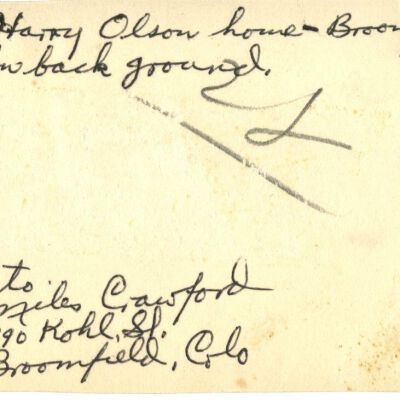 Harry Olson home - Broom
back ground.
to
Miles Crawford
90 Kohl St.
Broomfield, Colo